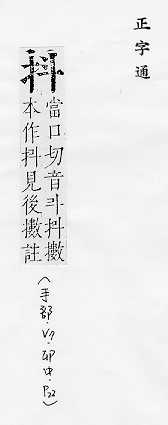 正字通
當口切音斗抖擻
本作抖見後擻註
(手部·V7·卯中·P22)